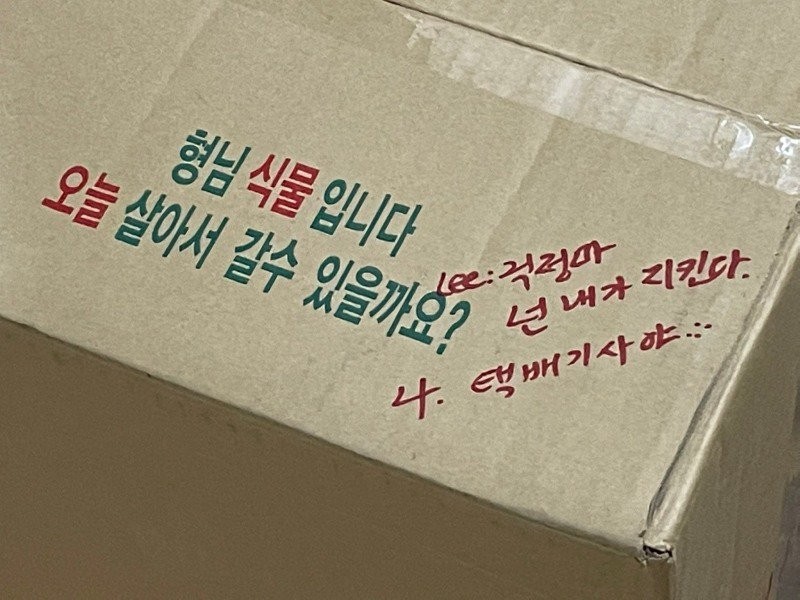 형님 식물 입니다
오늘 살아서 갈수 있을까요?
Lee: 걱정마
넌 내가 지킨다.
나. 택배기사야...